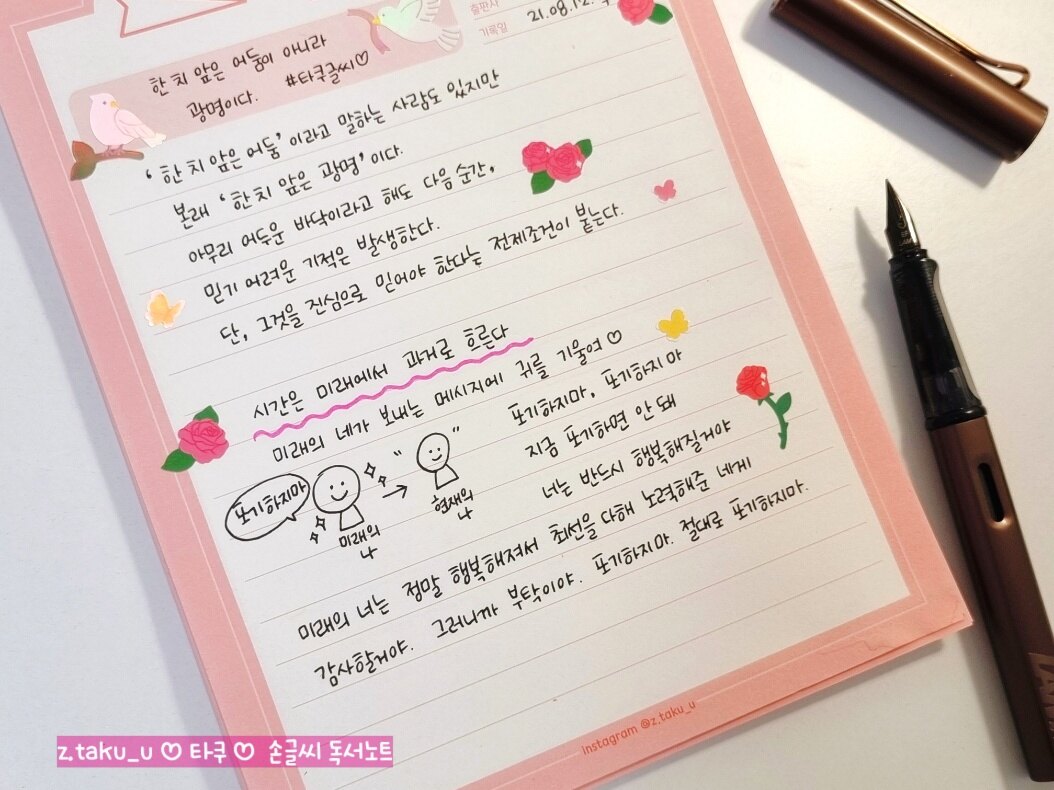 출판사
기록일 21.08.12.
한 치 앞은 어둠이 아니라
광명이다. #타쿠글씨♡
'한 치 앞은 어둠'이라고 말하는 사람도 있지만
본래 '한 치 앞은 광명'이다.
아무리 어두운 바닥이라고 해도 다음 순간,
믿기 어려운 기적은 발생한다.
단, 그것을 진심으로 믿어야 한다는 전제조건이 붙는다.
시간은 미래에서 과거로 흐른다
미래의 네가 보내는 메시지에 귀를 기울여♡
포기하지마, 포기하지마
지금 포기하면 안돼
너는 반드시 행복해질거야
포기하지마
미래의
나
→
" "
현재의
나
미래의 너는 정말 행복해져서 최선을 다해 노력해준 네게
감사할거야. 그러니까 부탁이야. 포기하지마. 절대로 포기하지마.
instagram @z.taku_u
z.taku_u ♡ 타쿠 ♡ 손글씨 독서노트